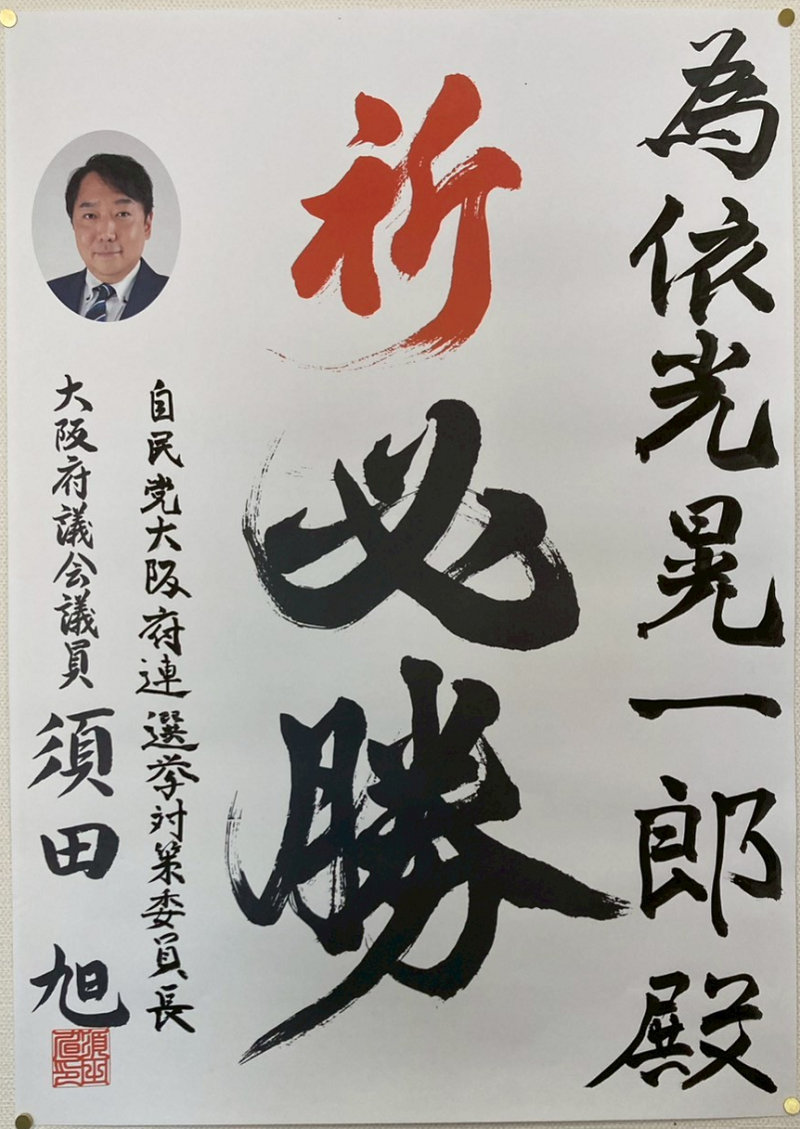 為依光晃一郎殿
祈必勝
自民党大阪府連選挙対策委員長
大阪府議会議員 須田旭